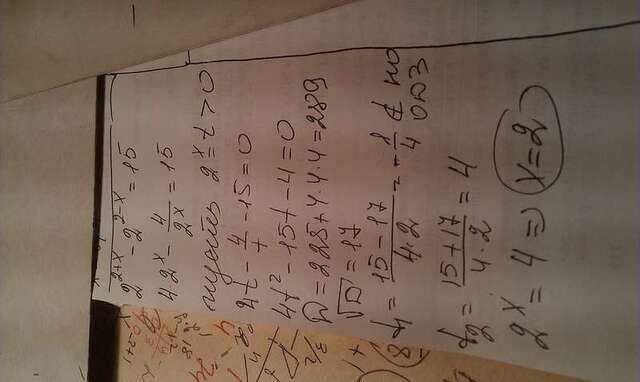 2^{2+x} - 2^{2-x} = 15
4·2^x - \frac{4}{2^x} = 15
пусть 2^x = t > 0
4t - \frac{4}{t} - 15 = 0
4t² - 15t - 4 = 0
D = 225 + 4·4·4 = 289
√D = 17
t_1 = \frac{15-17}{4·2} = -\frac{1}{4} ∉ по ОДЗ
t_2 = \frac{15+17}{4·2} = 4
2^x = 4 ⇒ x = 2